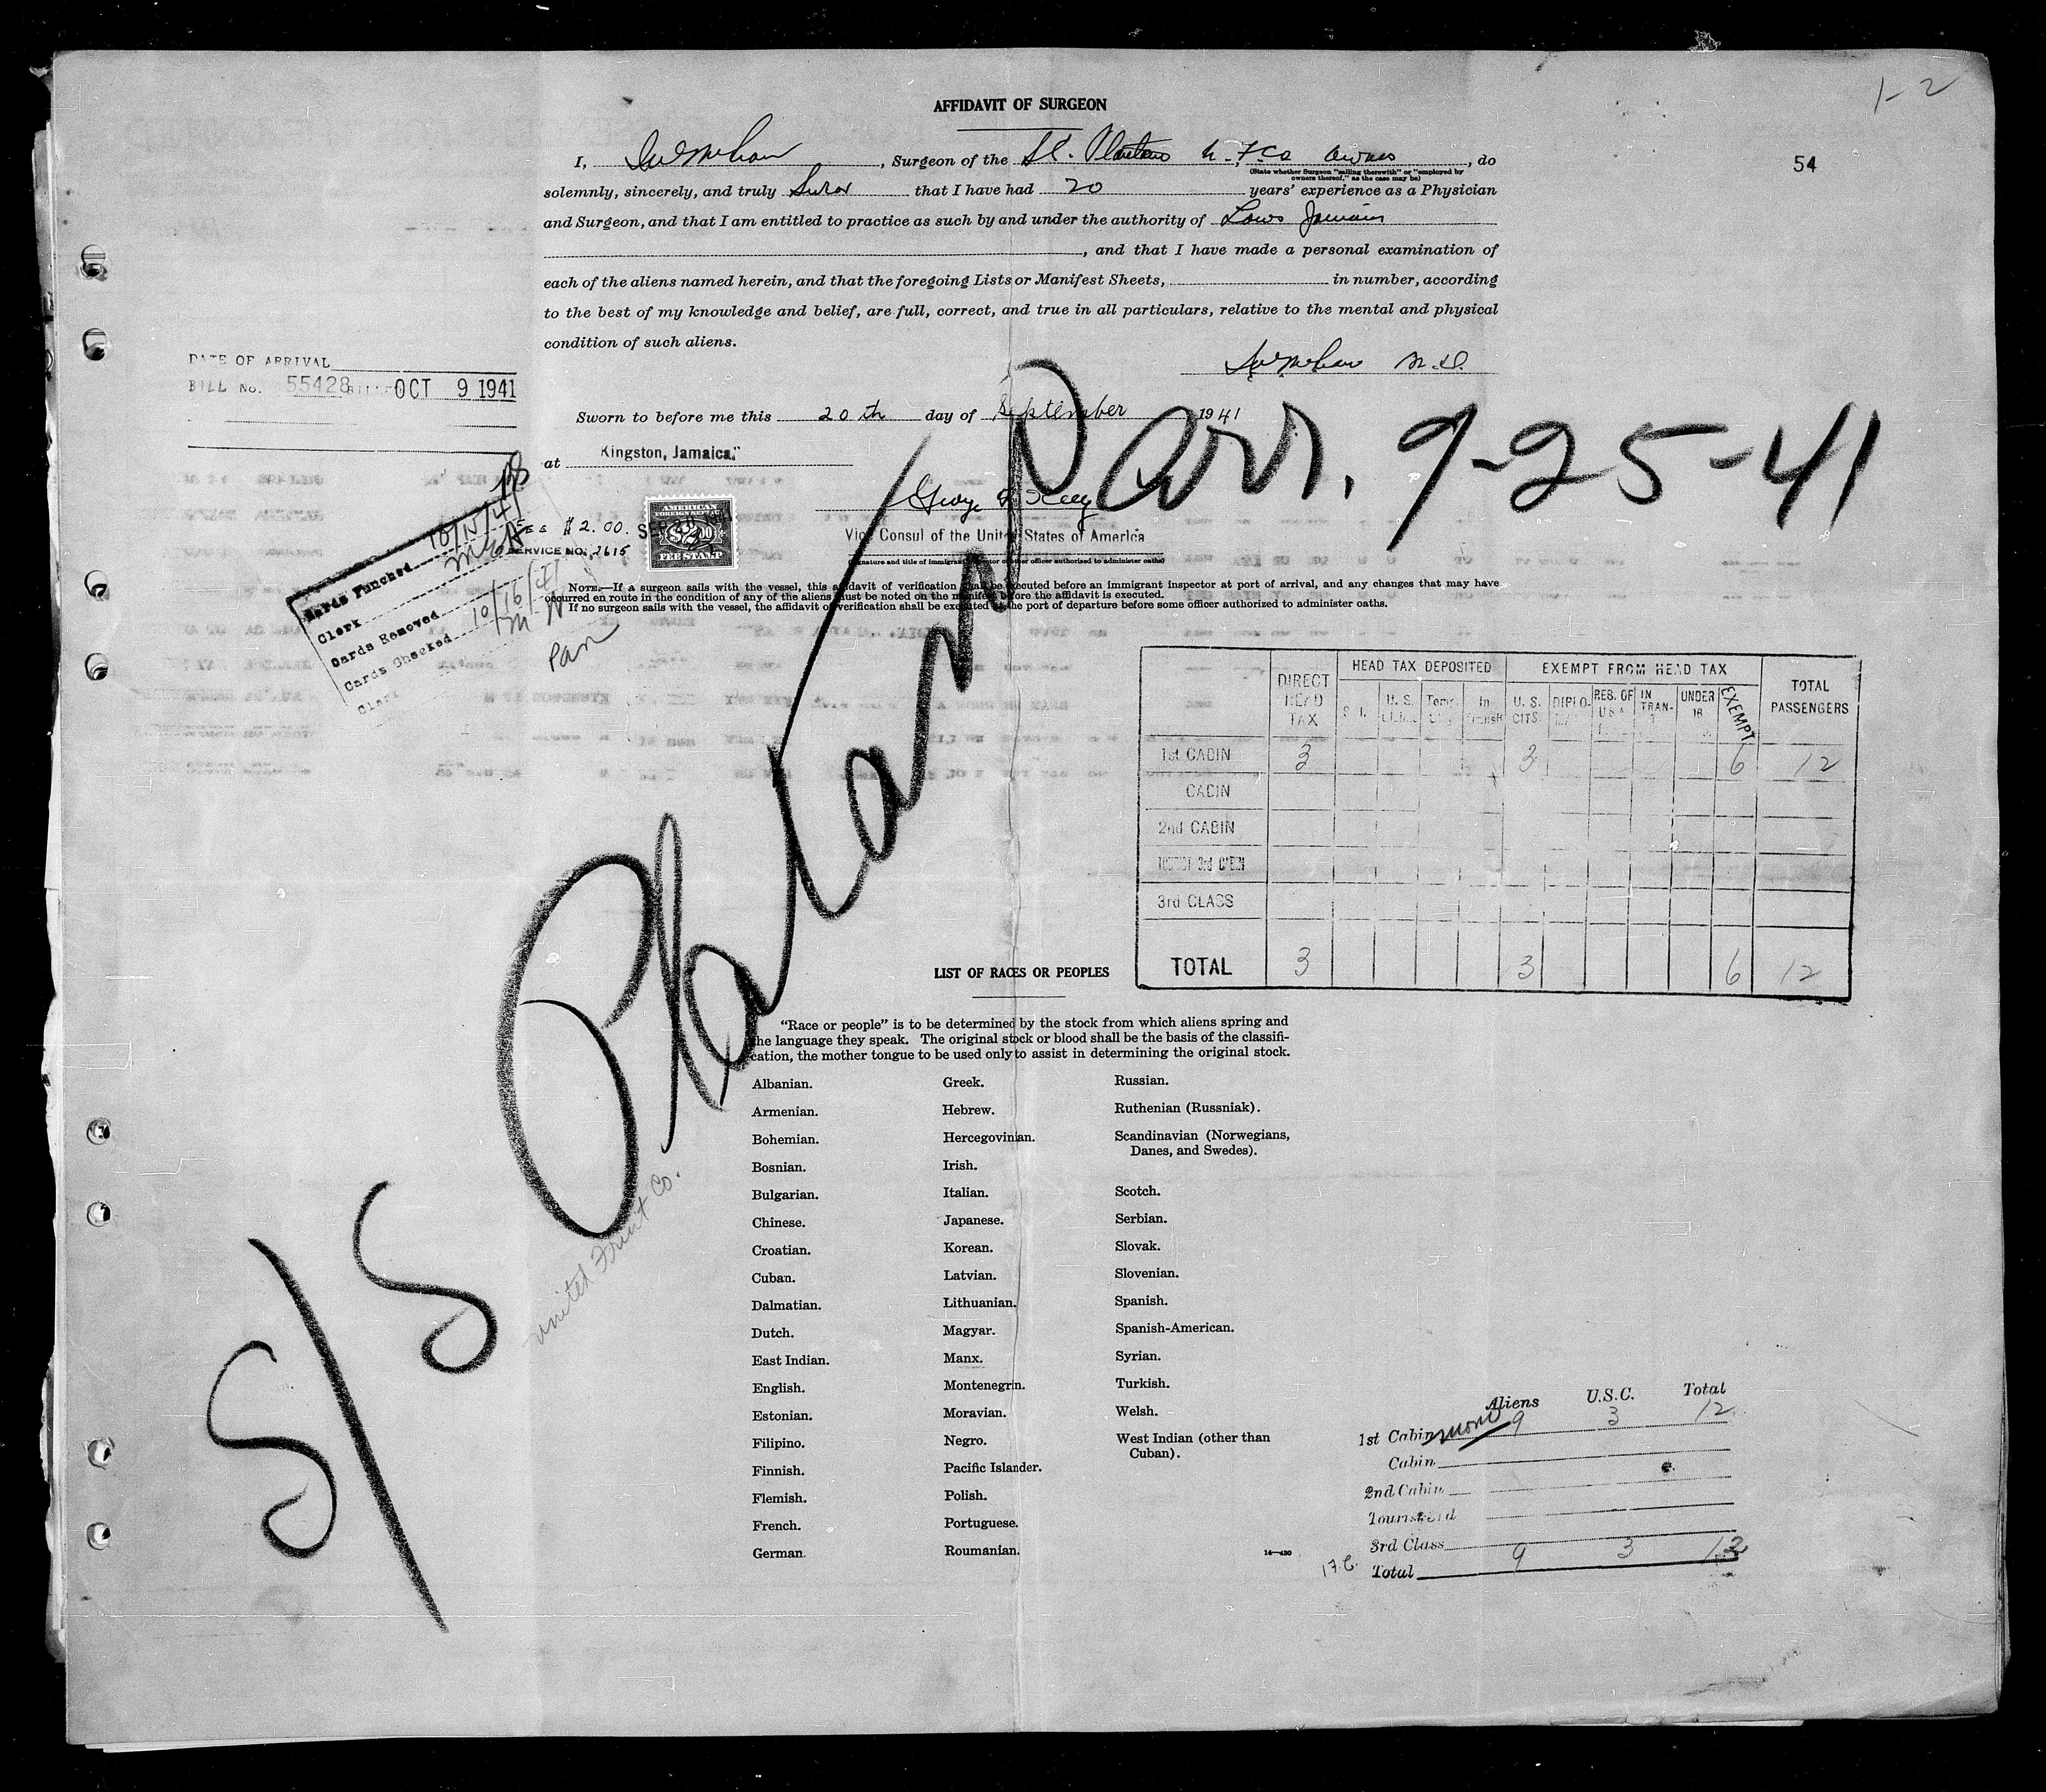 1-2
AFFIDAVIT OF SURGEON
54
I, , Surgeon of the , do
(State whether Surgeon "sailing therewith" or "employed by
owners thereof," as the case may be)
solemnly, sincerely, and truly that I have had 20 years' experience as a Physician
and Surgeon, and that I am entitled to practice as such by and under the authority of Laws Jamaica
, and that I have made a personal examination of
each of the aliens named herein, and that the foregoing Lists or Manifest Sheets, in number, according
to the best of my knowledge and belief, are full, correct, and true in all particulars, relative to the mental and physical
condition of such aliens.
M.D.
DATE OF ARRIVAL
BILL No. 55428 OCT 9 1941
Sworn to before me this 20th day of September 1941
at Kingston, Jamaica.
Arr. 9-25-41
Vice Consul of the United States of America
(Signature and title of immigrant inspector or other officer authorized to administer oaths)
$2.00
SERVICE NO. 2615
AMERICAN
FOREIGN SERVICE
$2.00
FEE STAMP
Cards Punched 10/15/41
Clerk
Cards Removed
Cards Checked 10/16/41
Clerk
Pan
NOTE.—If a surgeon sails with the vessel, this affidavit of verification shall be executed before an immigrant inspector at port of arrival, and any changes that may have
occurred en route in the condition of any of the aliens must be noted on the manifest before the affidavit is executed.
If no surgeon sails with the vessel, the affidavit of verification shall be executed at the port of departure before some officer authorized to administer oaths.
HEAD TAX DEPOSITED EXEMPT FROM HEAD TAX
DIRECT HEAD TAX U.S. Temp. In Transit U.S. CITS. DIPLO- RES. OF U.S.A. IN TRAN- UNDER 16 EXEMPT TOTAL PASSENGERS
1st CABIN 3 3 6 12
CABIN
2nd CABIN
TOURIST 3rd CABIN
3rd CLASS
TOTAL 3 3 6 12
S/S Platano
United Fruit Co.
LIST OF RACES OR PEOPLES
"Race or people" is to be determined by the stock from which aliens spring and
the language they speak. The original stock or blood shall be the basis of the classifi-
cation, the mother tongue to be used only to assist in determining the original stock.
Albanian. Greek. Russian.
Armenian. Hebrew. Ruthenian (Russniak).
Bohemian. Hercegovinian. Scandinavian (Norwegians,
Danes, and Swedes).
Bosnian. Irish.
Bulgarian. Italian. Scotch.
Chinese. Japanese. Serbian.
Croatian. Korean. Slovak.
Cuban. Latvian. Slovenian.
Dalmatian. Lithuanian. Spanish.
Dutch. Magyar. Spanish-American.
East Indian. Manx. Syrian.
English. Montenegrin. Turkish.
Estonian. Moravian. Welsh.
Filipino. Negro. West Indian (other than
Cuban).
Finnish. Pacific Islander.
Flemish. Polish.
French. Portuguese.
German. Roumanian.
14—430
Aliens U.S.C. Total
1st Cabin 9 3 12
Cabin
2nd Cabin
Tourist 3rd
3rd Class
Total 9 3 12